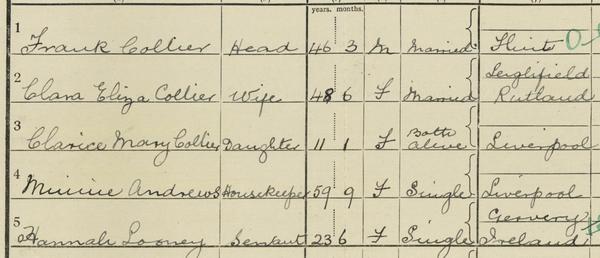 years. months.
1 Frank Collier Head 46 3 M Married Flint
2 Clara Eliza Collier Wife 48 6 F Married Rutland
3 Clarice Mary Collier Daughter 11 1 F Both alive Liverpool
4 Minnie Andrews Housekeeper 59 9 F Single Liverpool
5 Hannah Looney Servant 23 6 F Single Ireland